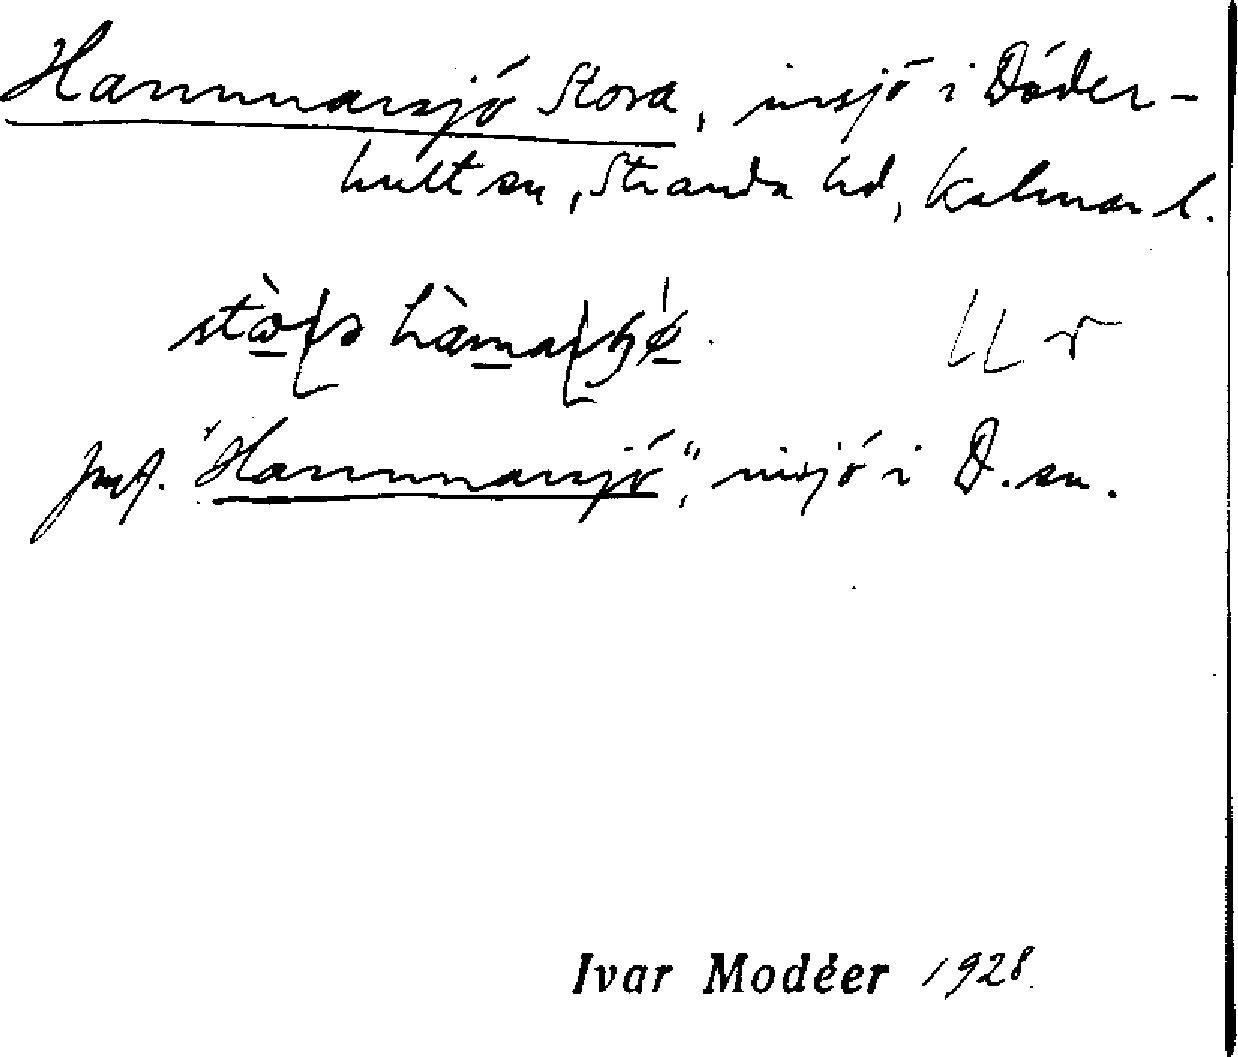 Hammarsjö Stora, insjö i Döder-
hult sn, Stranda hd, Kalmar l.
jmf. "Hammarsjö", insjö i D. sn.
Ivar Modéer 1928